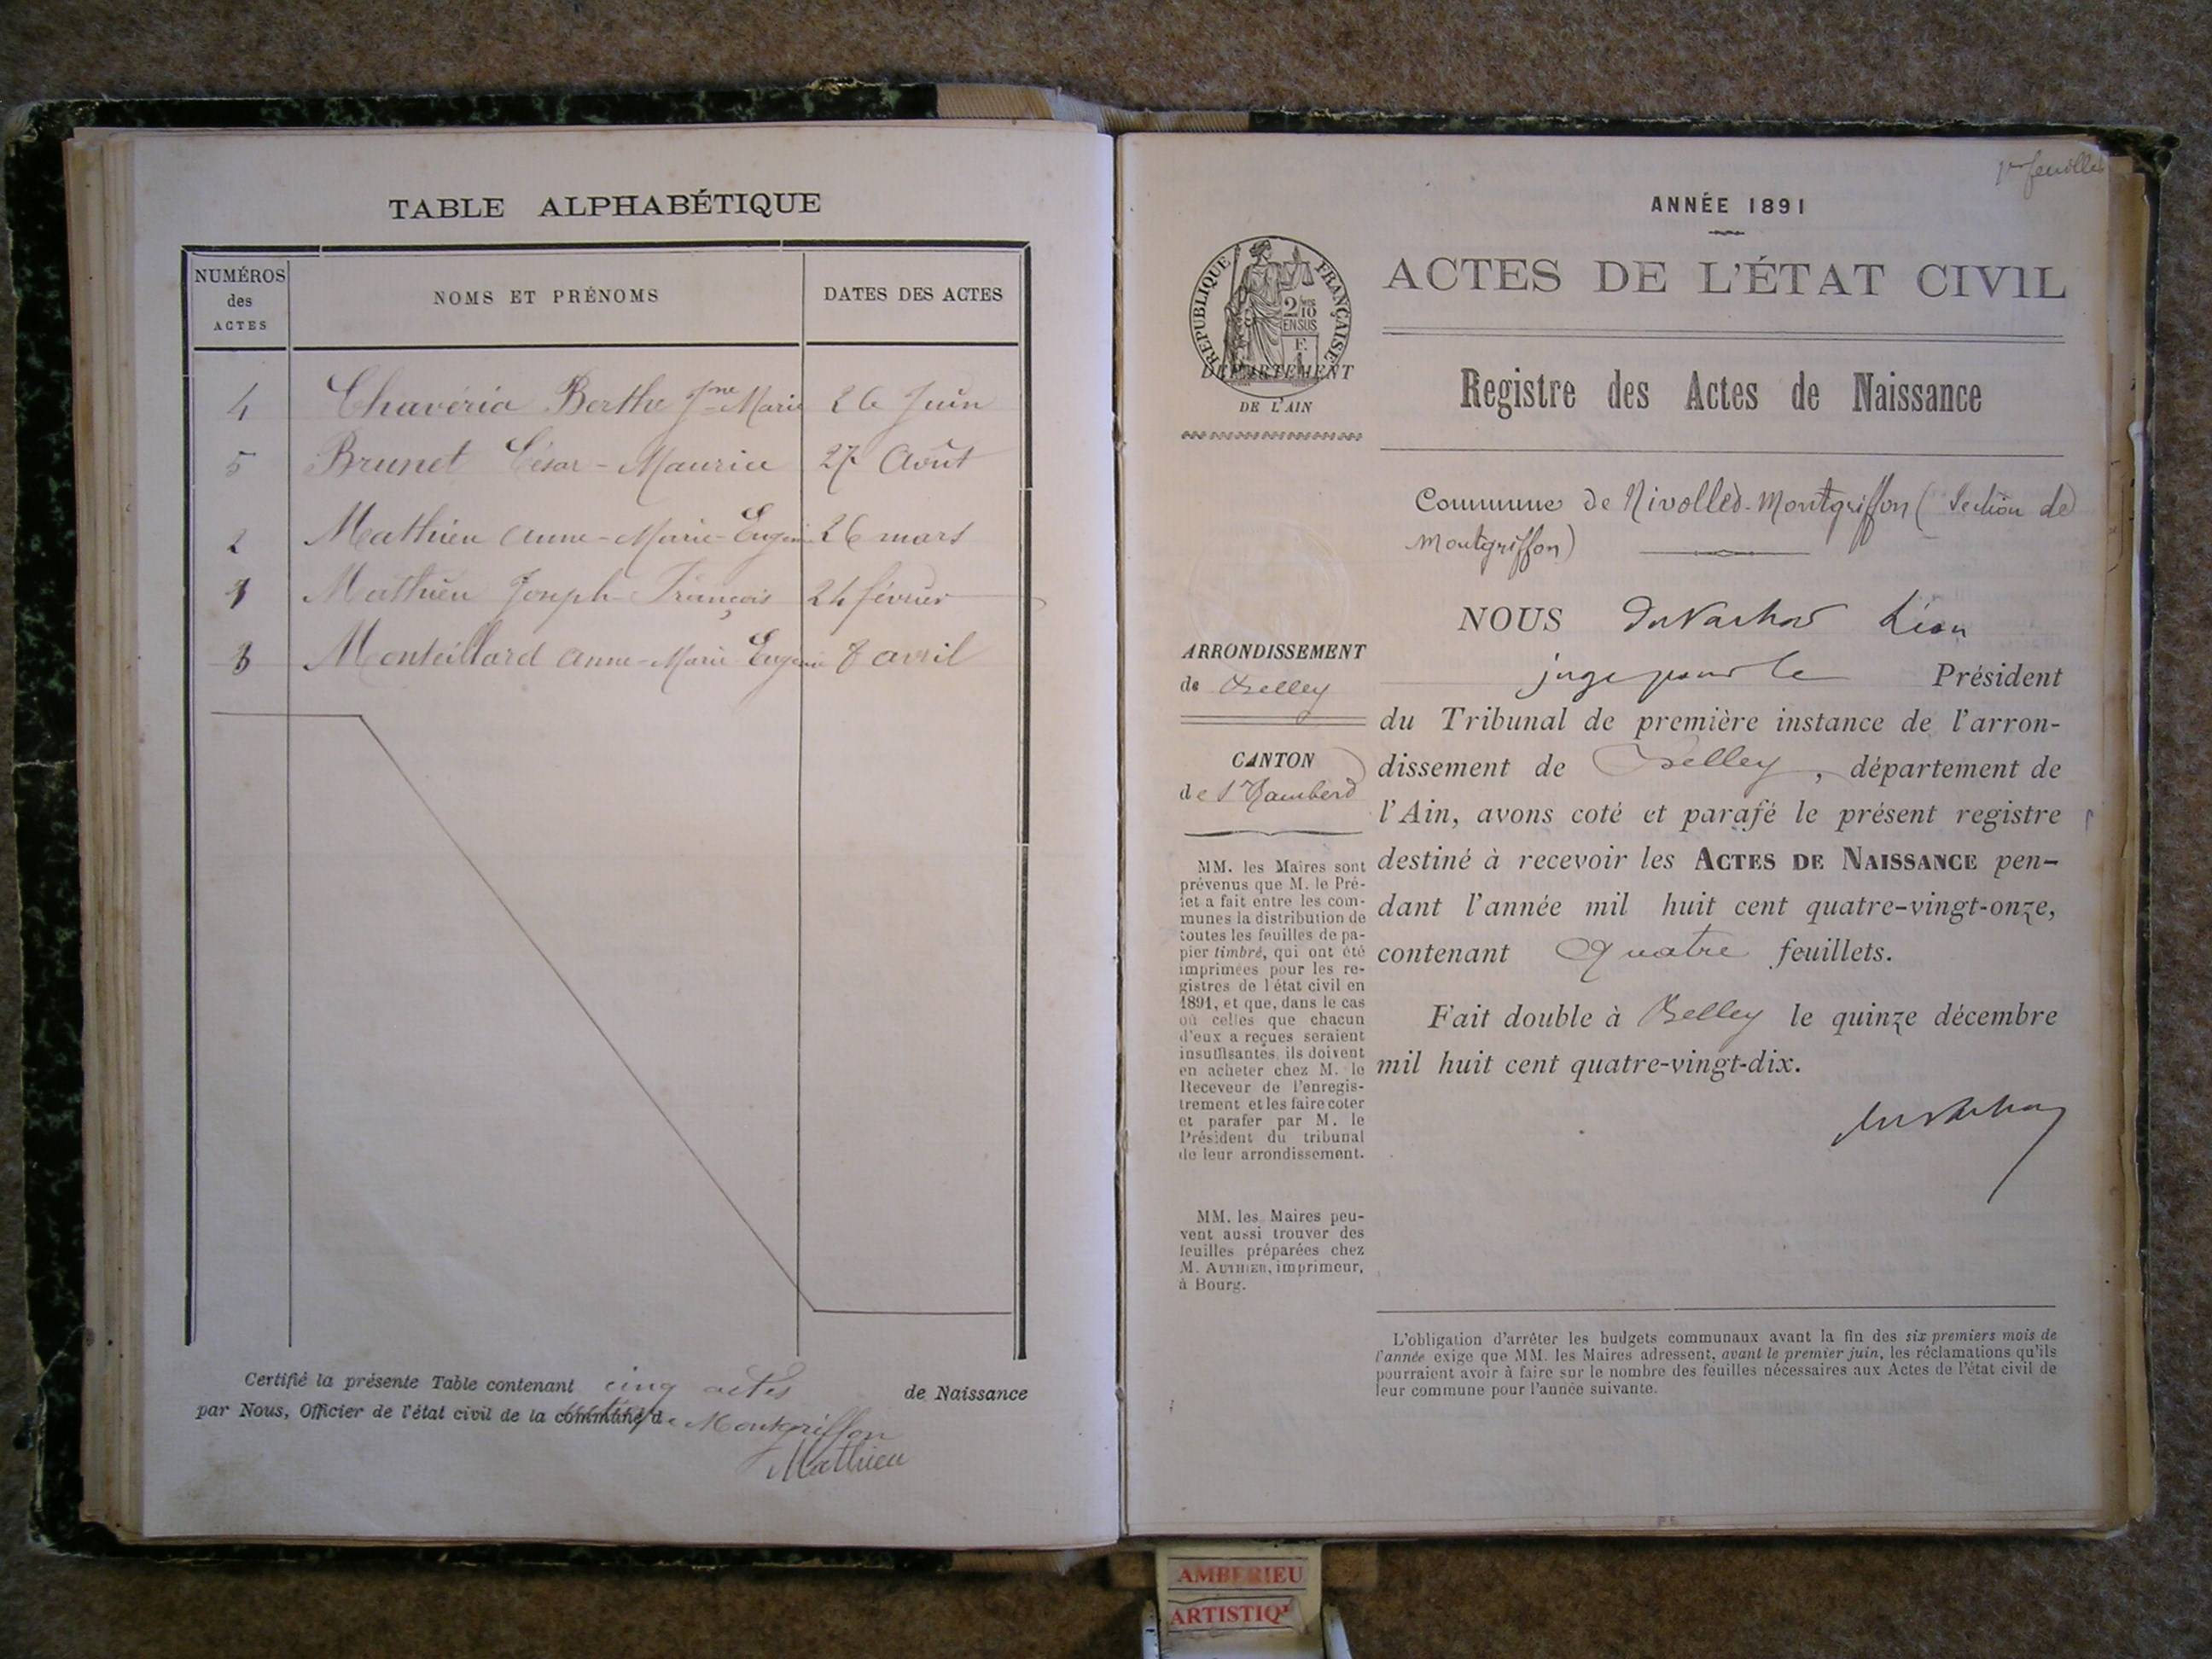 TABLE ALPHABÉTIQUE
NUMÉROS des ACTES
NOMS ET PRÉNOMS
DATES DES ACTES
4 Chavéria Berthe Jne Marie 26 Juin
5 Brunet César-Maurice 27 Août
2 Mathieu Anne-Marie-Eugénie 26 mars
1 Mathieu Joseph-François 24 février
3 Monteillard Anne-Marie Eugénie 8 avril
Certifié la présente Table contenant cinq actes de Naissance
par Nous, Officier de l'état civil de la commune de Montgriffon
Mathieu
1er feuillet
ANNÉE 1891
ACTES DE L'ÉTAT CIVIL
RÉPUBLIQUE FRANÇAISE
2/10
EN SUS
F.
1
DÉPARTEMENT
DE L'AIN
Registre des Actes de Naissance
Commune de Nivolles-Montgriffon (Section de
Montgriffon)
ARRONDISSEMENT
de Belley
CANTON
de St Rambert
MM. les Maires sont
prévenus que M. le Pré-
fet a fait entre les com-
munes la distribution de
toutes les feuilles de pa-
pier timbré, qui ont été
imprimées pour les re-
gistres de l'état civil en
1891, et que, dans le cas
où celles que chacun
d'eux a reçues seraient
insuffisantes, ils doivent
en acheter chez M. le
Receveur de l'enregis-
trement et les faire coter
et parafer par M. le
Président du tribunal
de leur arrondissement.
MM. les Maires peu-
vent aussi trouver des
feuilles préparées chez
M. AUTHIER, imprimeur,
à Bourg.
NOUS Léon
juge pour le Président
du Tribunal de première instance de l'arron-
dissement de Belley, département de
l'Ain, avons coté et parafé le présent registre
destiné à recevoir les ACTES DE NAISSANCE pen-
dant l'année mil huit cent quatre-vingt-onze,
contenant Quatre feuillets.
Fait double à Belley le quinze décembre
mil huit cent quatre-vingt-dix.
L'obligation d'arrêter les budgets communaux avant la fin des six premiers mois de
l'année exige que MM. les Maires adressent, avant le premier juin, les réclamations qu'ils
pourraient avoir à faire sur le nombre des feuilles nécessaires aux Actes de l'état civil de
leur commune pour l'année suivante.
AMBERIEU
ARTISTIQ